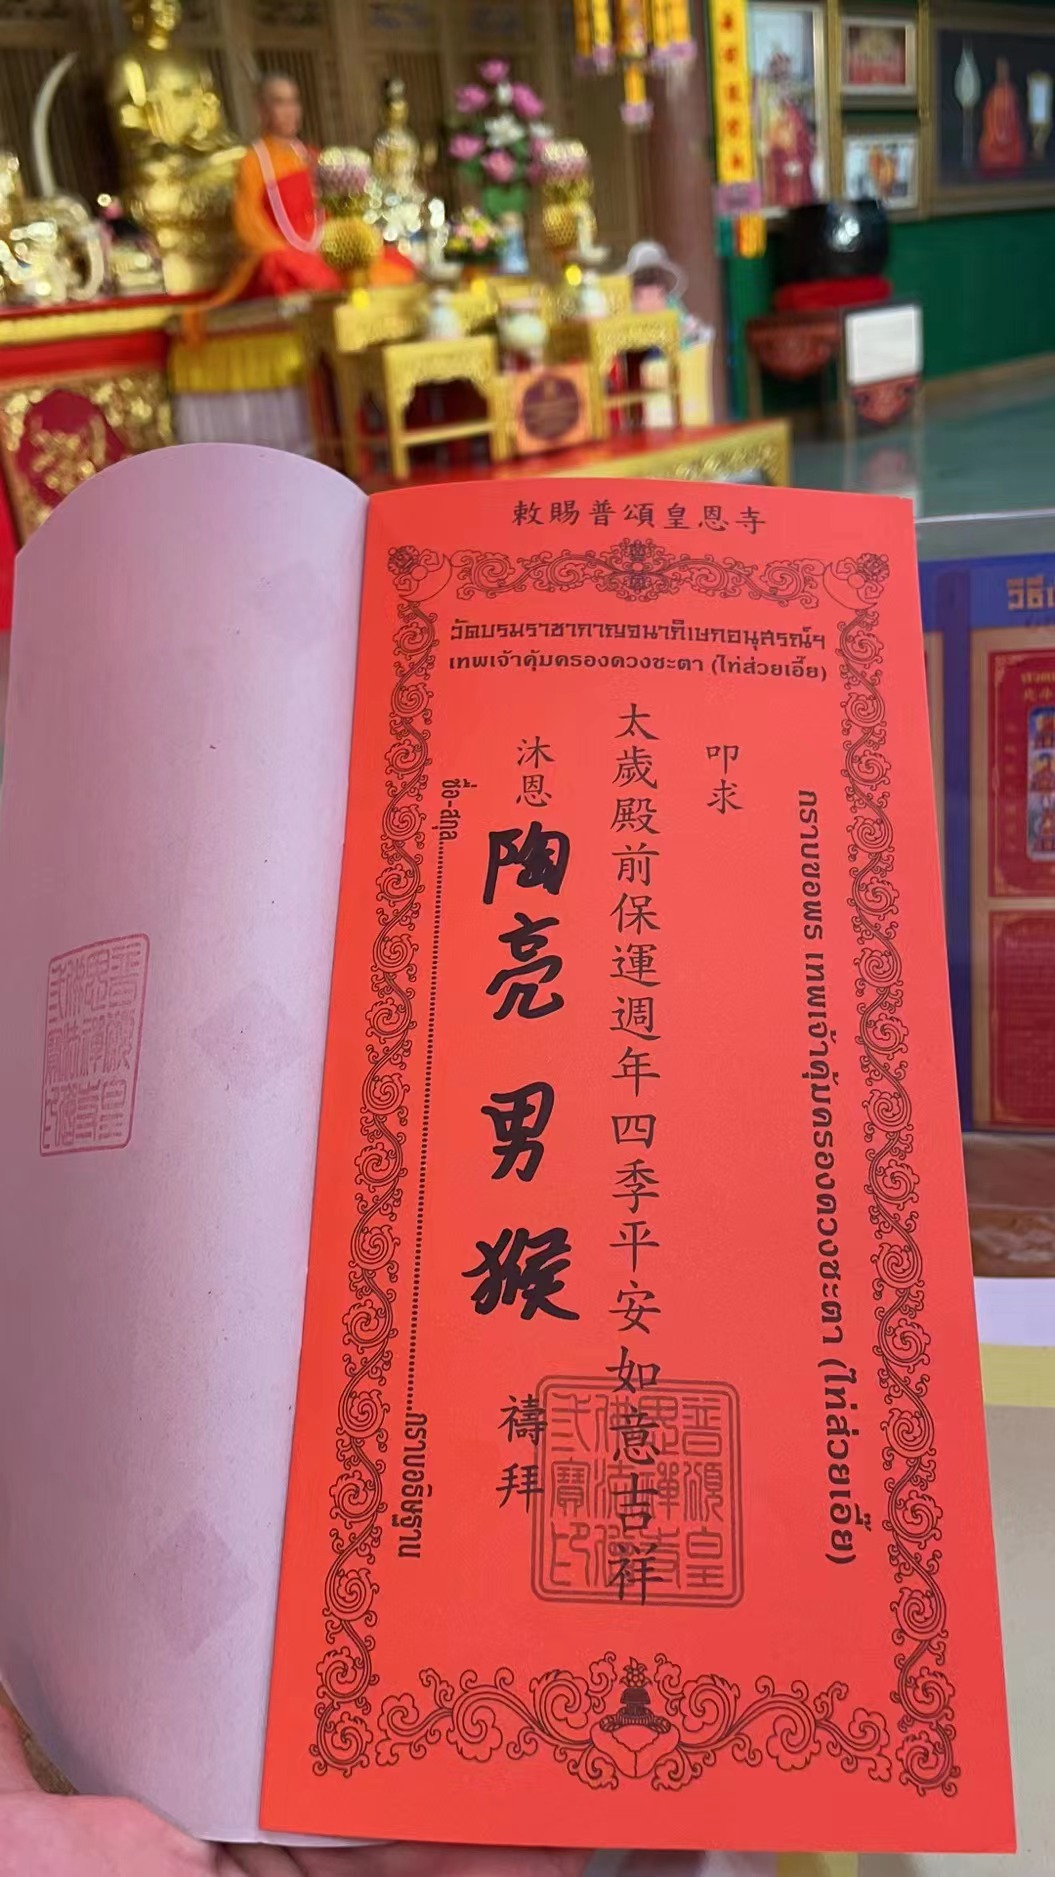 敕賜普頌皇恩寺
วัดบรมราชากาญจนาภิเษกอนุสรณ์ฯ
เทพเจ้าคุ้มครองดวงชะตา (ไท่ส่วยเอี๊ย)
กราบขอพร เทพเจ้าคุ้มครองดวงชะตา (ไท่ส่วยเอี๊ย)
叩求
太歲殿前保運週年四季平安如意吉祥
沐恩 陶亮 男 猴 禱拜
ชื่อ-สกุล........................กราบอธิษฐาน
วิธี